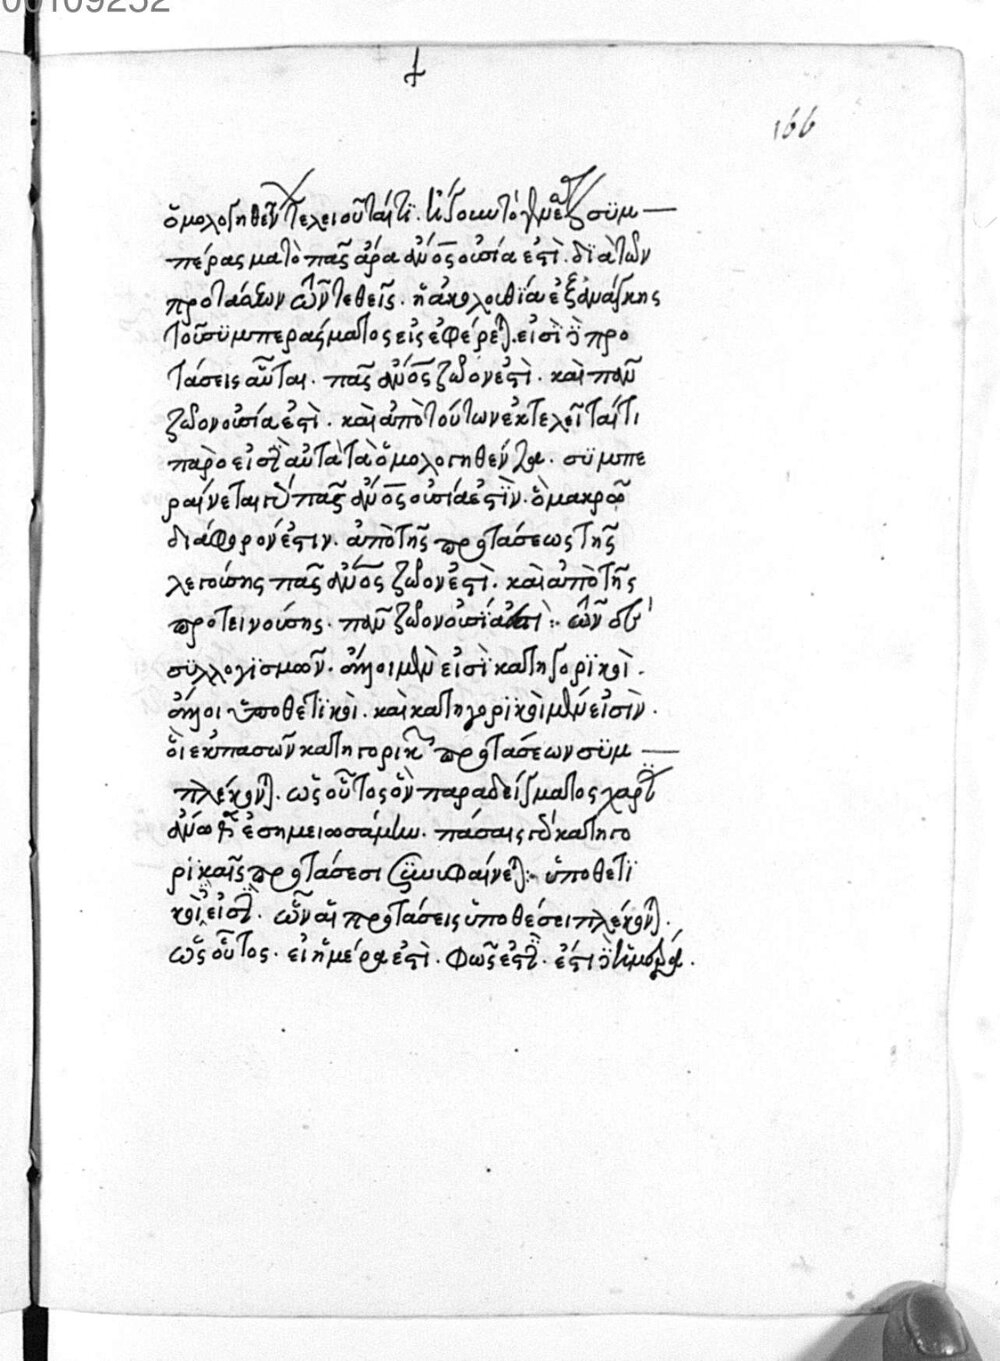 00109252
166
ὁμολογηθέντ τελειοῦται τί. συμ
πέρασμα τὸ πᾶς ἄρα ἄνος οὐσία ἐστὶ. διὰ τῶν
προτάσεων τεθεῖσ. ἡ ἀκολουθία ἐξ ἀνάγκης
τοῦ συμπεράσματος εἰσεφέρετ. εἰσὶ δὲ προ
τάσεις αὗται. πᾶς ἄνος ζῶον ἐστὶ. καὶ πᾶν
ζῶον οὐσία ἐστὶ. καὶ ἀπὸ τούτων ἐκτελεῖται τι
παρὸ εἰσὶ αὐτὰ τὰ ὁμολογηθέντα. συμπε
ραίνεται γὰρ πᾶς ἄνος οὐσία ἐστὶν. ὃ μακρῶ
διάφορον ἐστιν. ἀπὸ τῆς προτάσεως τῆς
λεγούσης πᾶς ἄνος ζῶον ἐστὶ. καὶ ἀπὸ τῆς
προτεινούσης. πᾶν ζῶον οὐσία ἐστὶ: τῶν δὲ
συλλογισμῶν. ἔνιοι μὲν εἰσὶ κατηγορικοὶ.
ἔνιοι ὑποθετικοὶ. καὶ κατηγορικοὶ μὲν εἰσὶν.
οἱ ἐκ πασῶν κατηγορικ προτάσεων συμ
πλέκοντ. ὡς οὗτος ὃν παραδείγματος χάριν
ἄνω ἐσημειωσάμην. πάσαις γὰρ κατηγο
ρικαῖς προτάσεσι φαίνετ: ὑποθετι
κοὶ εἰσὶ. ὧν αἱ προτάσεις ὑποθέσει πλέκοντ.
ὡς οὗτος. εἰ ἡμέρα ἐστὶ. φῶς ἐστὶ. ἐστὶ δὲ ἡμέρα.